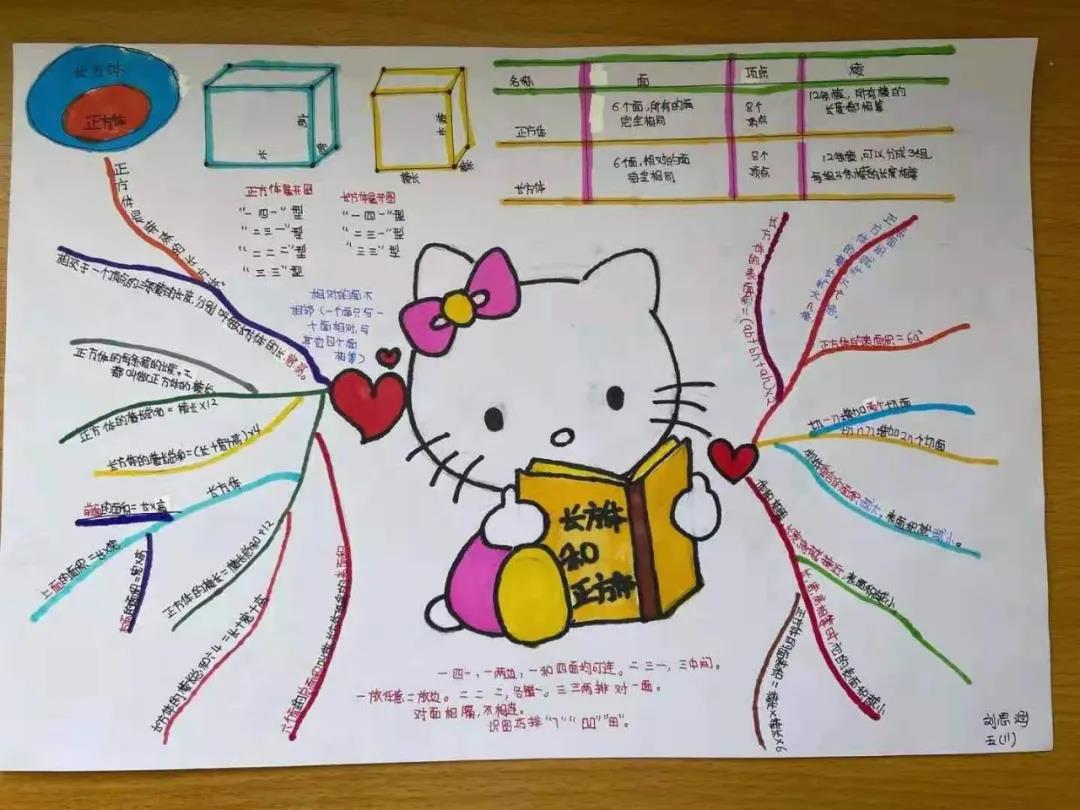 长方体
正方体
长
宽
高
棱长
棱长
棱长
名称
面
顶点
棱
正方体
6个面,所有的面
完全相同
8个
顶点
12条棱,所有棱的
长度都相等
长方体
6个面,相对的面
完全相同
8个
顶点
12条棱,可以分成3组,
每组4条棱的长度相等
正方体展开图
“一四一”型
“二三一”型
“二二二”型
“三三”型
长方体展开图
“一四一”型
“二三一”型
“三三”型
正方体是特殊的长方体
相交于一个顶点的三条棱的长度,分别叫做长方体的长.宽.高。
相对的面不
相邻(一个面只与一
个面相对,与
其它四个面
相等)
正方体的每条棱的长度,
都叫做正方体的棱长
正方体的棱长总和=棱长×12
长方体的棱长总和=(长+宽+高)×4
长方体
前面的面积=长×高
上面的面积=长×宽
右面的面积=宽×高
正方体的棱长=棱长总和÷12
长方体的棱长总和÷4=长+宽+高
六个面的总面积叫做长方体或正方体的表面积
长方体的表面积=(ab+bh+ah)×2
正方体的表面积=6a²
切一刀增加两个切面
切n刀增加2n个切面
拼接重合的面积越大,表面积就越小。
正方体的表面积=棱长×棱长×6
长方体
和
正方体
一四一,一两边,一和四面均可连。二三一,三中间。
一放任意二放边。二二二,各错一。三三两排对一面。
对面相隔,不相连。
识图巧排“7”“凹”“田”。
刘思涵
五(11)